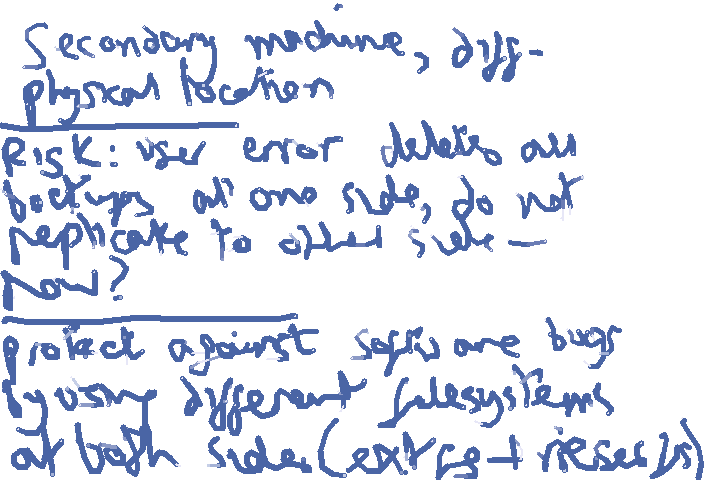 Secondary machine, diff-
physical location
Risk: user error deletes all
backups at one side, do not
replicate to other side —
how?
protect against software bugs
by using different filesystems
at both sides (ext + rieserfs)